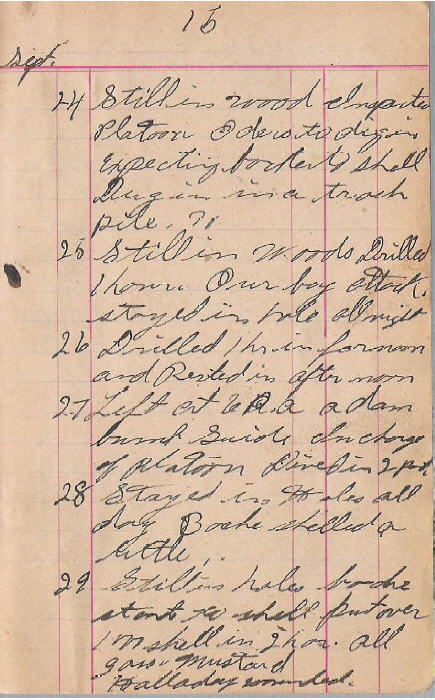 15
Sept.
24 Still in wood
Platoon Oders to dig in
Expecting to shell
Dug in in a trash
pile.
25 Still in Woods Drilled
1 hour. Our boy attack.
stayed in hole all night
26 Drilled 1 hr in fornoon
and Rested in after noon
27 Left at a dam
bum Guide In charge
of platoon in 2
28 Stayed in Holes all
day Boche shelled a
little.
29 Still in holes boche
start to shell put over
shell in 2 hor. all
gass. Mustard
Halladay wounded.